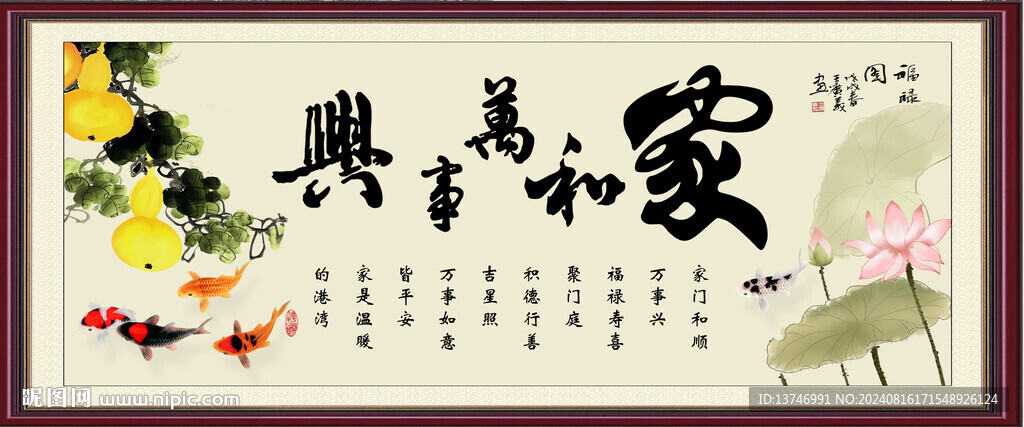 福禄
图
戊戌春
家和萬事興
家门和顺
万事兴
福禄寿喜
聚门庭
积德行善
吉星照
万事如意
皆平安
家是温暖
的港湾
昵图网 www.nipic.com
ID:13746991 NO:20240816171548926124